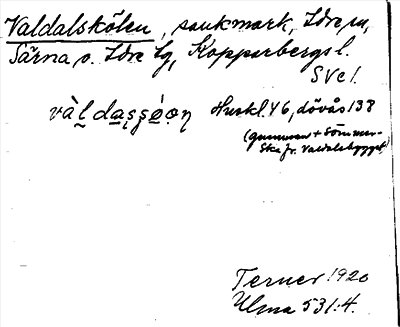 Valdalskölen, sankmark, Idre sn,
Särna o. Idre tg, Kopparbergs l.
Sve l.
Huskl. 46, dövås 138
(gummsen + Sömmer-
ska fr. Valdalsbygget)
Terner 1920
Ulma 531:4.